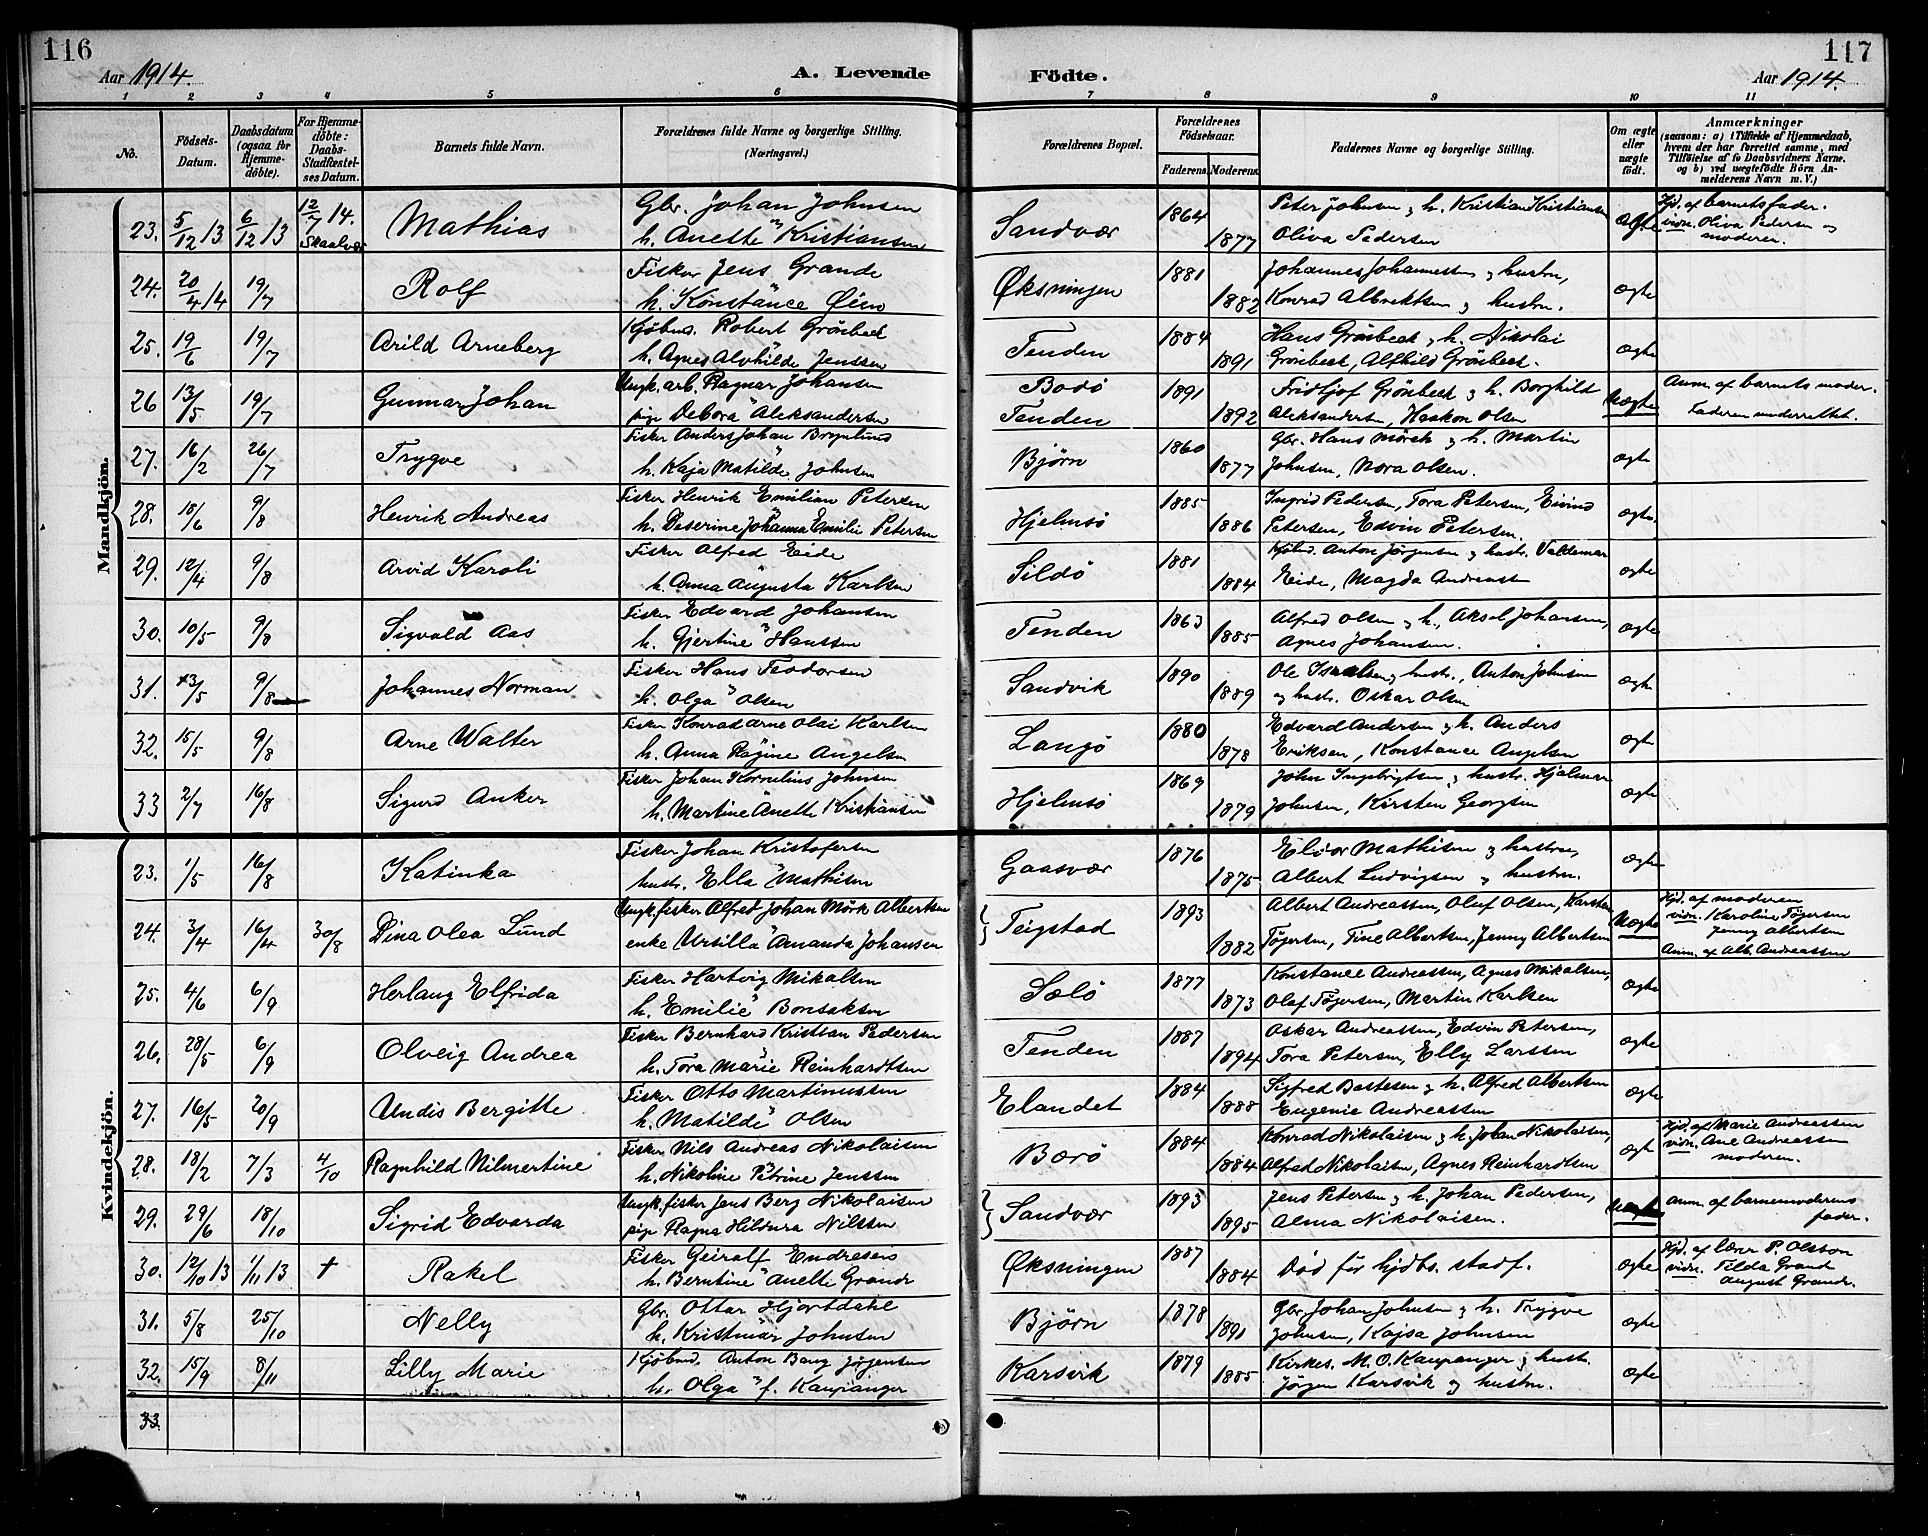 116
117
Aar 1914.
A. Levende
Födte.
Aar 1914.
1 2 3 4 5 6 7 8 9 10 11
No.
Födsels-Datum.
Daabsdatum (ogsaa for Hjemme-döbte).
For Hjemme-döbte: Daabs-Stadfæstel-ses Datum.
Barnets fulde Navn.
Forældrenes fulde Navne og borgerlige Stilling. (Næringsvei.)
Forældrenes Bopæl.
Forældrenes Födselsaar.
Faderens. Moderens.
Faddernes Navne og borgerlige Stilling.
Om ægte eller uægte födt.
Anmærkninger
(saasom: a) i Tilfælde af Hjemmedaab, hvem der har forrettet samme, med Tilföielse af to Daabsvidners Navne, og b) ved uægtefödte Börn An-melderens Navn m. V.)
Mandkjön.
23. 5/12 13 6/12 13 12/7 14. Skaalvær Mathias Gbr. Johan Johnsen Sandvær 1864 Peter Johnsen og h. Kristian Kristiansen ægte Hjd. af barnets fader.
h. Anette Kristiansen 1877 Oliva Pedersen vidn. Oliva Pedersen og moderen.
24. 20/4 14 19/7 Rolf Fisker Jens Grande Øksningen 1881 Johannes Johannessen og hustru, ægte
h. Konstance Øien 1882 Konrad Albrektsen og hustru.
25. 19/6 19/7 Arild Arneberg Kjøbmd. Robert Grönbeck Tenden 1884 Hans Grönbeck og h. Nikolai ægte
h. Agnes Alvhilde Jenssen 1891 Grönbeck, Alfhild Grönbeck.
26 13/5 19/7 Gunnar Johan Ungk. arb. Ragnar Johansen Bodö 1891 Fridtjof Grönbeck og h. Borghild Uægte Anm. af barnets moder.
pige Debora Aleksandersen Tenden 1892 Aleksandersen, Haakon Olsen Faderen underrettet.
27. 16/2 26/7 Trygve Fisker Anders Johan Brynlund Bjørn 1860 Gbr. Hans Mörck og h. Martin ægte
h. Kaja Matilde Johnsen 1877 Johnsen, Nora Olsen.
28. 18/6 9/8 Henrik Andreas Fisker Henrik Emilian Petersen Hjelmsö 1885 Ingrid Pedersen, Tora Petersen, Eivind ægte.
h. Peserine Johanna Emilie Petersen 1886 Petersen, Edvin Petersen.
29. 12/4 9/8 Arvid Karoli Fisker Alfred Eide Sildö 1881 Kjöbmd. Anton Jörgensen og hustr. Valdemar ægte
h. Anna Augusta Karlsen 1884 Eide, Magda Andreassen
30. 10/5 9/8 Sigvald Aas Fisker Edvard Johansen Tenden 1863 Alfred Olsen og h., Aksel Johansen, ægte
h. Gjertine Hanssen 1885 Agnes Johansen.
31. 13/5 9/8 Johannes Norman Fisker Hans Teodorsen Sandvik 1890 Ole Isaksen og hustr., Anton Johnsen ægte
h. Olga Olsen 1889 og hustr. Oskar Olsen
32. 15/5 9/8 Arne Walter Fisker Konrad Arne Olai Karlsen Langö 1880 Edvard Andersen og h. Anders ægte
h. Anna Regine Angelsen 1878 Eriksen, Konstance Angelsen
33 2/7 16/8 Sigurd Anker Fisker Johan Kornelius Johnsen Hjelmsö 1869 John Ingebrigtsen og hustr. Hjalmar ægte
h. Martine Anette Kristiansen 1879 Johnsen, Kirsten Georgsen
Kvindekjön.
23. 1/5 16/8 Katinka Fisker Johan Kristofersen Gaasvær 1876 Elior Mathisen og hustru, ægte
hustr. Ella Mathisen 1875 Albert Ludvigsen og hustru.
24. 3/4 16/4 30/8 Dina Olea Lund Ungk. fisker Alfred Johan Mörk Albertsen Teigstad 1893 Albert Andreassen, Oluf Olsen, Karsten Uægte Hjd. af moderen
enke Ursilla Amanda Johansen 1882 Tøgersen, Tine Albertsen, Jenny Albertsen vidn. Karoline Tøgersen Jenny Albertsen
Anm. af Alb. Andreassen
25. 4/6 6/9 Herlaug Elfrida Fisker Hartvig Mikalsen Sælö 1877 Konstance Andreassen, Agnes Mikalsen, ægte
h. Emilie Bonsaksen 1873 Olaf Tøgersen, Martin Karlsen
26. 28/5 6/9 Olveig Andrea Fisker Bernhard Kristian Pedersen Tenden 1887 Oskar Andreassen, Edvin Petersen, ægte
h. Tora Marie Reinhardtsen 1894 Tora Petersen, Elly Larssen
27. 16/5 20/9 Undis Bergitte Fisker Otto Martinussen Elandet 1884 Sigfred Bastesen og h. Alfred Albertsen ægte
h. Matilde Olsen 1888 Eugenie Andreassen
28. 18/2 7/3 4/10 Ragnhild Nilmertine Fisker Nils Andreas Nikolaisen Bærö 1884 Konrad Nikolaisen og h. Johan Nikolaisen, ægte Hjd. af Marie Andreassen
h. Nikoline Petrine Jenssen 1884 Alfred Nikolaisen, Agnes Reinhardtsen vidn. Ane Andreassen moderen.
29. 29/6 18/10 Sigrid Edvarda Ungk. fisker Jens Berg Nikolaisen Sandvær 1893 Jens Petersen og h. Johan Pedersen, Uægte Anm. af barnemoderens fader.
pige Ragna Hildura Nilssen 1895 Alma Nikolaisen.
30. 12/10 13 1/11 13 † Rakel Fisker Geiralf Endresen Øksningen 1887 Död för hjdbs. stadf. ægte Hjd. af lærer P. Olsson
h. Berntine Anette Grande 1884 vidn. Tilda Grand August Grande.
31. 5/8 25/10 Nelly Gbr. Ottar Hjortdahl Bjørn 1878 Gbr. Johan Johnsen og h. Trygve ægte
h. Kristmar Johnsen 1891 Johnsen, Kajsa Johnsen
32. 15/9 8/11 Lilly Marie Kjöbmd. Anton Bang Jörgensen Karsvik 1879 Kirkes. M. O. Kaupanger og hustr. ægte
h. Olga f. Kaupanger 1885 Jörgen Karsvik og hustru.
33.